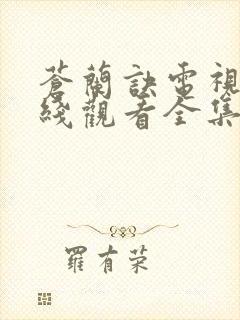 蒼蘭訣電視
綫觀看全集
羅有荣